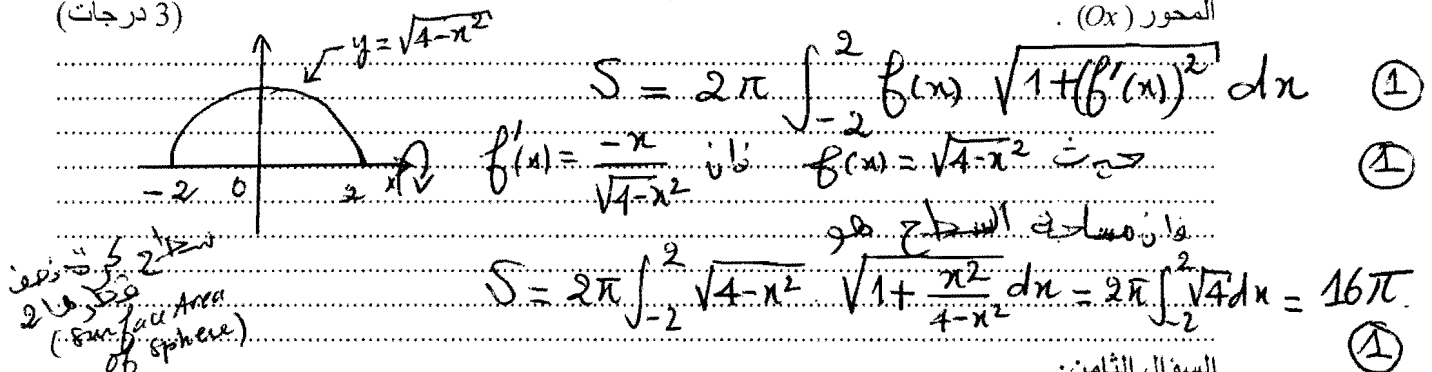 المحور (Ox) . (3 درجات)
y = √(4-x²)
S = 2π ∫_{-2}^{2} f(x) √(1+(f'(x))²) dx ①
حيث f(x) = √(4-x²) فإن f'(x) = -x/√(4-x²) ①
-2 0 2 x
فإن مساحة السطح هو
S = 2π ∫_{-2}^{2} √(4-x²) √(1+ x²/(4-x²)) dx = 2π ∫_{-2}^{2} √4 dx = 16π.
①
سطح كرة نصف
قطرها 2
(surface Area
of sphere)
السؤال الثامن: